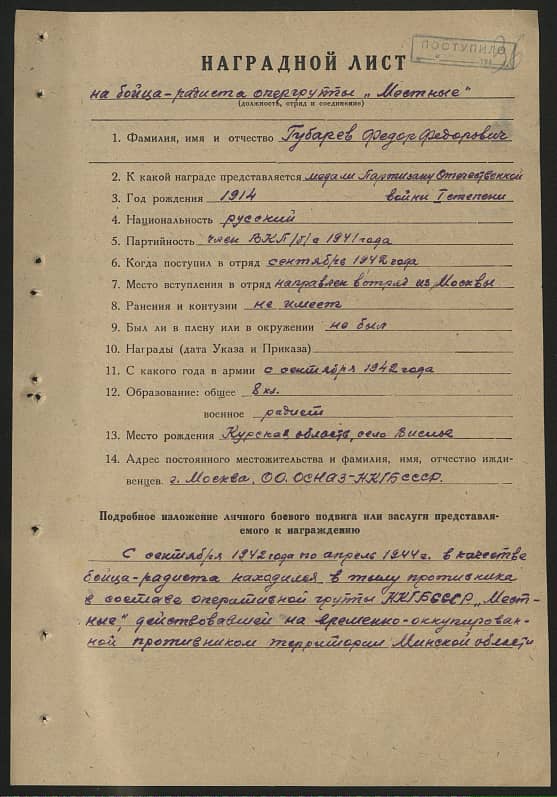 ПОСТУПИЛО
НАГРАДНОЙ ЛИСТ
на бойца-радиста опергруппы „Местные"
(должность, отряд и соединение)
1. Фамилия, имя и отчество Губарев Федор Федорович
2. К какой награде представляется медали Партизану Отечественной
войны I степени
3. Год рождения 1914
4. Национальность русский
5. Партийность член ВКП/б/ с 1941 года
6. Когда поступил в отряд сентябрь 1942 года
7. Место вступления в отряд направлен в отряд из Москвы
8. Ранения и контузии не имеет
9. Был ли в плену или в окружении не был
10. Награды (дата Указа и Приказа)
11. С какого года в армии с сентября 1942 года
12. Образование: общее 8 кл.
военное радист
13. Место рождения Курская область, село Вислое
14. Адрес постоянного местожительства и фамилия, имя, отчество ижди-
венцев г. Москва, ОО. ОСНАЗ-НКГБ СССР.
Подробное изложение личного боевого подвига или заслуги представля-
емого к награждению
С сентября 1942 года по апрель 1944 г. в качестве
бойца-радиста находился в тылу противника
в составе оперативной группы НКГБ СССР „Мест-
ные", действовавшей на временно-оккупирован-
ной противником территории Минской области